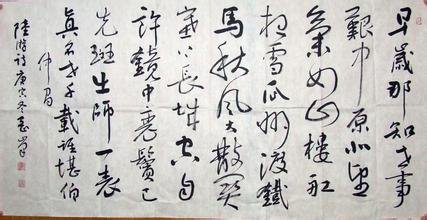 早歲那知世事
艱中原北望
氣如山樓船
夜雪瓜洲渡鐵
馬秋風大散關
塞上長城空自
許鏡中衰鬢已
先斑出師一表
真名世千載誰堪伯
仲間
陸游詩庚寅冬